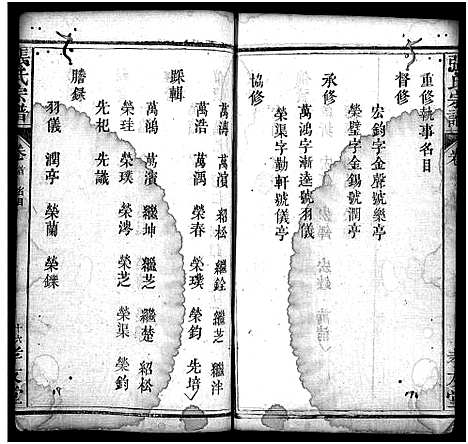 重修執事名目
督修
宏鈞字金聲號樂亭
榮璧字金錫號潤亭
承修
萬鴻字漸逵號羽儀
榮渠字勤軒號儀亭
協修
萬濤 萬濱 紹松 繼銓 繼芝 繼沣
萬浩 萬澫 榮春 榮璞 榮鈞 先培
踩輯
萬鴻 萬濱 繼坤 繼芝 繼楚 紹松
榮珪 榮璞 榮濤 榮芝 榮渠 榮鈞
先祀 先議
謄録
羽儀 潤亭 榮蘭 榮鑠
張氏宗譜
卷首
十六